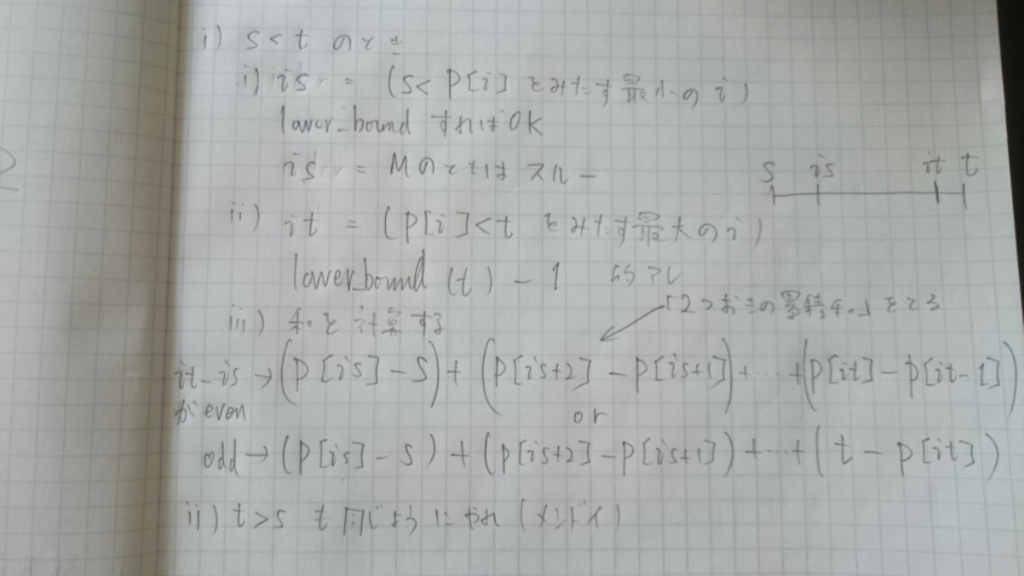 i) s<t のとき
i) is = (s< P[i] をみたす最小の i)
lower_bound すれば OK
is = M のときは スルー
s is it t
ii) it = (P[i]<t をみたす最大の i)
lower_bound (t) - 1 で
「2つおきの累積和」をとる
iii) 和を計算する
it-is → (P[is]-S)+(P[is+2]-P[is+1])+…+(P[it]-P[it-1])
が even
or
odd → (P[is]-S)+(P[is+2]-P[is+1])+…+(t-P[it])
ii) t>s も同じようにやれ (メンドイ)